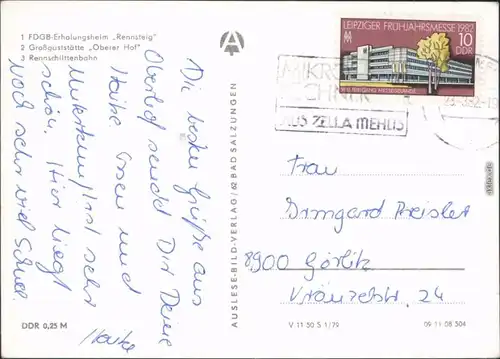 1 FDGB-Erholungsheim „Rennsteig"
2 Großgaststätte „Oberer Hof"
3 Rennschlittenbahn
Die besten Grüße aus
Oberhof sendet Dir Deine
Heike. Essen und
Unterkunft ist sehr
schön. Hier liegt
noch sehr viel Schnee.
Heike
DDR 0,25 M
AUSLESE-BILD-VERLAG / 62 BAD SALZUNGEN
LEIPZIGER FRÜHJAHRSMESSE 1982
10
DDR
MIKRO
AUS ZELLA MEHLIS
Frau
Irmgard Preisler
8900 Görlitz
24
V 11 50 S 1/79
09 11 08 504